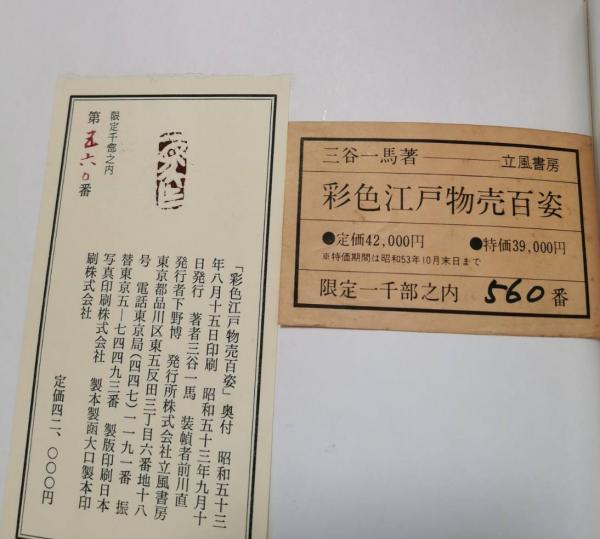 限定千部之内
第五六〇番
「彩色江戸物売百姿」奥付 昭和五十三
年八月十五日印刷 昭和五十三年九月十
日発行 著者三谷一馬 装幀者前川直
発行者下野博 発行所株式会社立風書房
東京都品川区東五反田三丁目六番地十八
号 電話東京局(四四七)一一九一番 振
替東京五―七四四九三番 製版印刷日本
写真印刷株式会社 製本製函大口製本印
刷株式会社
定価四二、〇〇〇円
三谷一馬著―立風書房
彩色江戸物売百姿
●定価42,000円 ●特価39,000円
※特価期間は昭和53年10月末日まで
限定一千部之内 560番